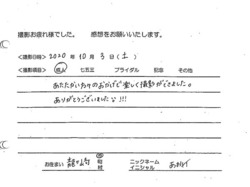 撮影お疲れ様でした。 感想をお願いいたします。
<撮影日時> 2020 年 10 月 3 日 (土)
<撮影項目> 成人 七五三 ブライダル 記念 その他
あたたかい方々のおかげで楽しく撮影ができました。
ありがとうございました!!!
お住まい ニックネーム
イニシャル